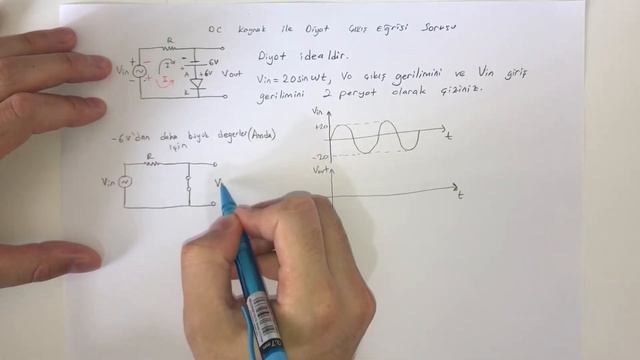 DC Kaynak ile Diyot Çıkış Eğrisi Sorusu
R
+ -
6V
Vin
I
I
A
+6V
K
Vout
Diyot idealdir.
Vin = 20 sin wt, Vo çıkış gerilimini ve Vin giriş
gerilimini 2 peryot olarak çiziniz.
-6V'dan daha büyük değerler (Anoda)
için
R
Vin
V
Vin
+20
-20
t
Vout
t
0.7